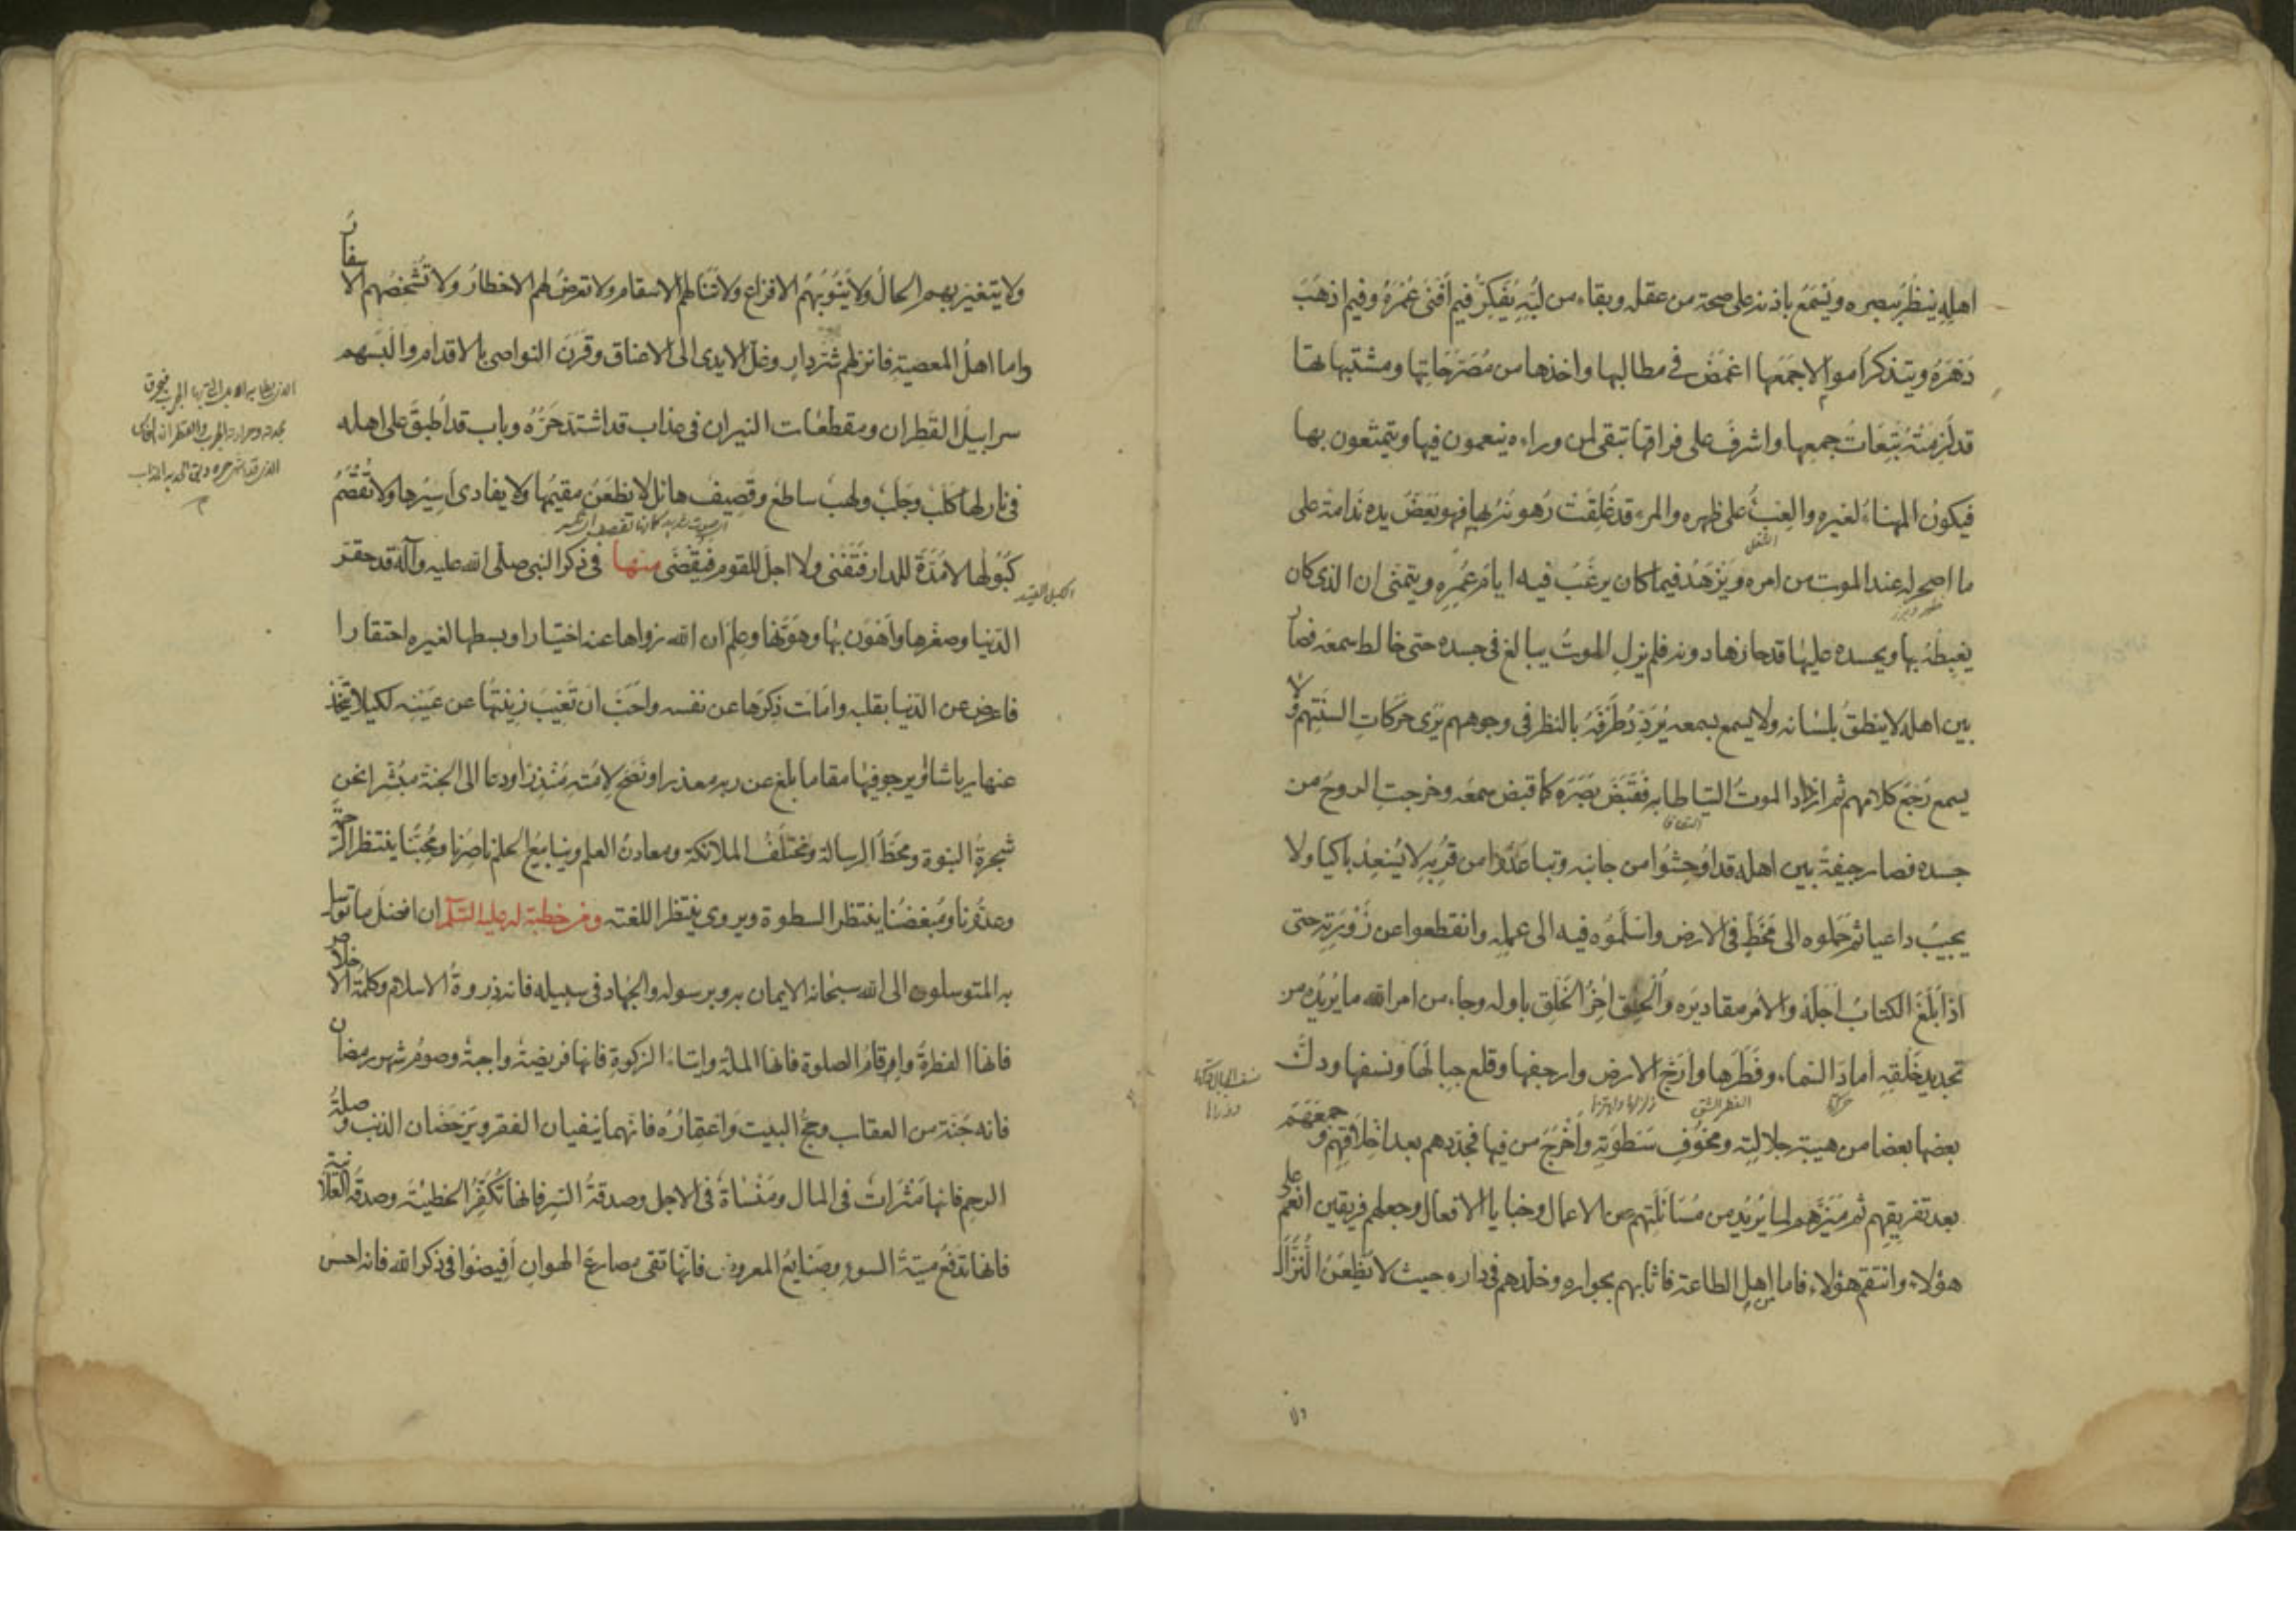 اهلِهِ ينظُرُ ببصره ويَسْمَعُ باذنه على صحة من عقله وبقاء من لُبِّهِ يُفَكِّرُ فيمَ أفنَى عُمْرَهُ وفيم اذهَبَ
دَهْرَهُ ويتذكر اموالا جَمَعَها اغمَضَ في مطالبها واخذها من مُصَرَّحَاتِها ومشتبهاتها
قد لَزِمَتْهُ تَبِعَاتُ جمعِها واشرفَ على فراقها تبقى لمن وراءه ينعمون فيها ويتمتعون بها
فيكون المهناءُ لغيره والعِبْءُ على ظهره والمرء قد غَلِقَتْ رُهونُهُ بها فهو يَعَضُّ يده نَدامةً على
الثقل
ما اصحر له عند الموت من امره ويَزْهَدُ فيما كان يرغَبُ فيه ايام عُمِرِه ويتمنى ان الذى كان
يغبِطُهُ بها ويحسده عليها قد حازها دونه فلم يزلِ الموتُ يبالغ فى جسده حتى خالط سمعَه فصار
بين اهله لا ينطقُ بلسانه ولا يسمع بسمعه يُرَدِّدُ طَرْفَهُ بالنظر فى وجوههم يَرَى حَرَكَاتِ السنتِهم ولا
يسمع رَجْعَ كلامهم ثم ازداد الموتُ التياطا به فَقَبَضَ بَصَرَه كما قبض سمعَه وخرجتِ الروحُ من
التصاقا
جسده فصار جيفةً بين اهله قد اوحِشُوا من جانبه وتباعَدُوا من قُرْبِه لا يُسْعِدُ باكيا ولا
يجيبُ داعيا ثم حَمَلوه الى مَخَطٍّ فى الارض واسلَمُوه فيه الى عملِه وانقطعوا عن زَوْرَتِه حتى
اذا بَلَغَ الكتابُ أجَلَهُ والأمْرُ مقاديرَه وأُلْحِقَ آخِرُ الخَلقِ باوله وجاء من امر الله ما يُريدُه من
تجديد خَلْقِه أمادَ السماء وفَطَرَها وأرَجَّ الارض وارجفها وقلع جِبالَها ونسفها ودكَّ
الفطر الشق
بعضُها بعضا من هيبة جلالتِه ومخوفِ سَطوَتِه وأخْرَجَ من فيها فجدّدهم بعد اخلاقِهم وجمعَهَم
بعد تفريقِهم ثم مَيَّزَهم لما يُريدُ من مُسَائَلَتِهم عن الاعمال وخبايا الافعال وجعلهم فريقين انعَمَ على
هؤلاء وانتقم من هؤلاء فاما اهل الطاعة فاثابهم بجواره وخلّدهم فى داره حيث لا يَظْعَنُ النُّزَّالُ
ولا
ولا يتغير بهم الحالُ ولا يَنُوبُهم الافزاع ولا تنالهم الاسقام ولا تعرِضُ لهم الاخطارُ ولا تُشْخِصُهم الاسفارُ
واما اهلُ المعصيةِ فانزلهم شرّ دارٍ وغلّ الايدى الى الاعناق وقَرَنَ النواصى بالاقدام والبسهم
سرابيلَ القَطِران ومقطعات النيران فى عذاب قد اشتدّ حَرُّه وباب قد اُطبقَ على اهله
فى نار لها كَلَبٌ وجَلَبٌ ولهبٌ ساطع وقَصِيفٌ هائل لا يظعَنُ مقيمُها ولا يفادى أسِيرُها ولا تُفْصَمُ
كُبُولُها لا مُدَّةَ للدار فَتَفْنى ولا اجلَ للقوم فيُقْضَى منها فى ذكر النبى صلّى الله عليه وآله قد حقّر
الكبل القيد
الدّنيا وصغّرها وأهْوَنَ بها وهَوّنها وعلِمَ ان الله زواها عنه اختيارا وبسطها لغيره احتقارا
فاعرض عن الدّنيا بقلبه واماتَ ذِكرَها عن نفسه واحبّ ان تَغيبَ زينتُها عن عَيْنِه لكيلا يتّخذ
عنها رياشا او يرجو فيها مقاما بلغ عن ربه معذرا ونَصَحَ لامّتِه مُنْذِرًا ودعا الى الجنة مبُشّرا نحن
شجرةُ النبوة ومحَطُّ الرسالة ومُختَلَفُ الملائكة ومعادنُ العلم وينابيعُ الحلم ناصِرُنا ومُحِبُّنا ينتظر الرّحمَةَ
وعدُوّنا ومُبغضُنا ينتظر السطوة ويروى ينتظر اللعنة ومن خطبة له عليه السّلم ان افضل ما توسل
به المتوسلون الى الله سبحانه الايمان به وبرسوله والجهاد فى سبيله فانه ذِروةُ الاسلام وكلمة الاخلاص
فانها الفطرةُ واِقامُ الصلوة فانها الملة وايتاء الزكوة فانها فريضةٌ واجبةٌ وصومُ شهر رمضان
فانه جُنّة من العقاب وحجُّ البيت واعتِمارُه فانهما ينفيان الفقر ويَرْحَضَان الذنب وصلةُ
الرحِم فانها مَثْرَاتٌ فى المال ومَنْسَاةٌ فى الاجل وصدقةُ السّرِ فانها تُكَفِّرُ الخطيئة وصدقة العلانية
فانها تَدْفَعُ مِيتةَ السوءِ وصَنايعُ المعروف فانّها تقى مصارعَ الهوانِ اَفيضُوا فى ذكر الله فانه احسن